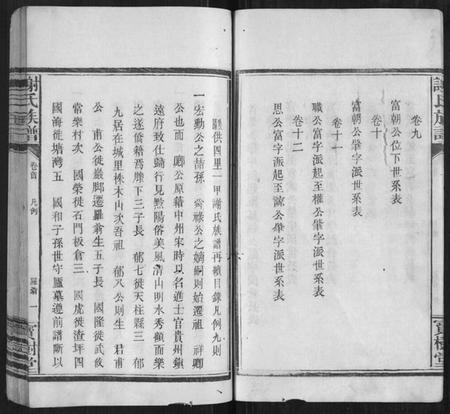 謝氏族譜
卷九
富朝公位下世系表
卷十
富朝公肇字派世系表
卷十一
職公富字派起至權公肇字派世系表
卷十二
思公富字派起至歐公肇字派世系表
供四里一甲謝氏族譜再續目錄凡例九則
一宏勳公之喆孫
公也而 卿公原籍中州宋時以名進士官貴州鎮
遠府致仕歸行見黔陽俗美風清山明水秀顧而樂
之遂僑籍焉膝下三子長 郁七徙天柱縣三 郁
九居在城里株木山次吾祖 郁八公則生 君甫
公 甫公徙巖腳遷羅翁生五子長 國隆徙武攸
當樂村次 國榮徙石門板倉三 國虎徙渣坪四
國海徙塘灣五 國和子孫世守廬墓遵前譜斷以
謝氏族譜
卷首
凡例
羅翁
一
寶樹堂
寶樹堂